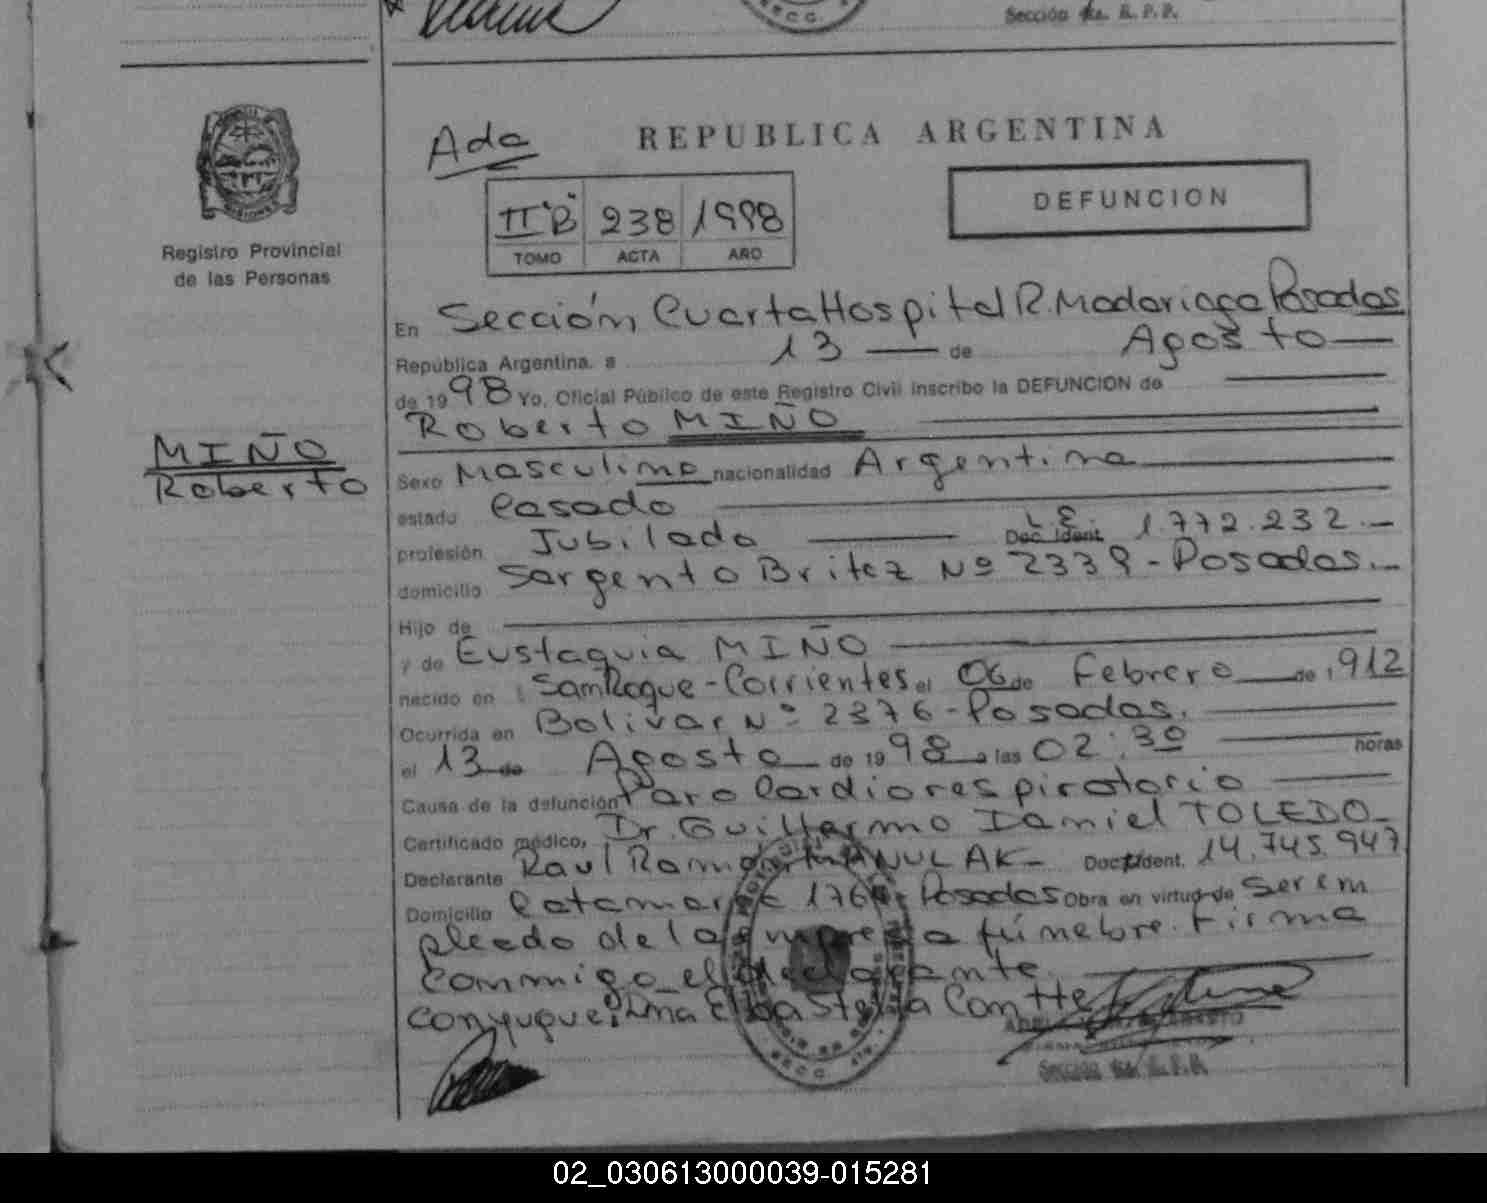 Sección 4ta. R. P. P.
REPUBLICA ARGENTINA
DEFUNCION
II "B" 238 1998
TOMO ACTA AÑO
Registro Provincial
de las Personas
MIÑO
Roberto
En Sección Cuarta Hospital R. Madariaga Posadas
República Argentina, a 13 de Agosto
de 1998 Yo, Oficial Público de este Registro Civil inscribo la DEFUNCION de
Roberto MIÑO
Sexo Masculino nacionalidad Argentina
estado Casado
profesión Jubilado L.E. Doc. Ident. 1.772.232.-
domicilio Sargento Britez Nº 2339 - Posadas.-
Hijo de
y de Eustaquia MIÑO
nacido en San Roque - Corrientes el 06 de Febrero de 1,912
Ocurrida en Bolivar Nº 2376 - Posadas.
el 13 de Agosto de 1998 a las 02:30 horas
Causa de la defunción Paro Cardiorespiratorio
Certificado médico, Dr. Guillermo Daniel TOLEDO
Declarante Raul Ramón HANULAK - Doc. Ident. 14.745.947
Domicilio Catamarca 1764 Posadas Obra en virtud de ser em
pleado de la empresa fúnebre. Firma
conmigo el declarante
conyugue: Ana Elba Stella Contte
Sección 4ta. R. P. P.
02_030613000039-015281